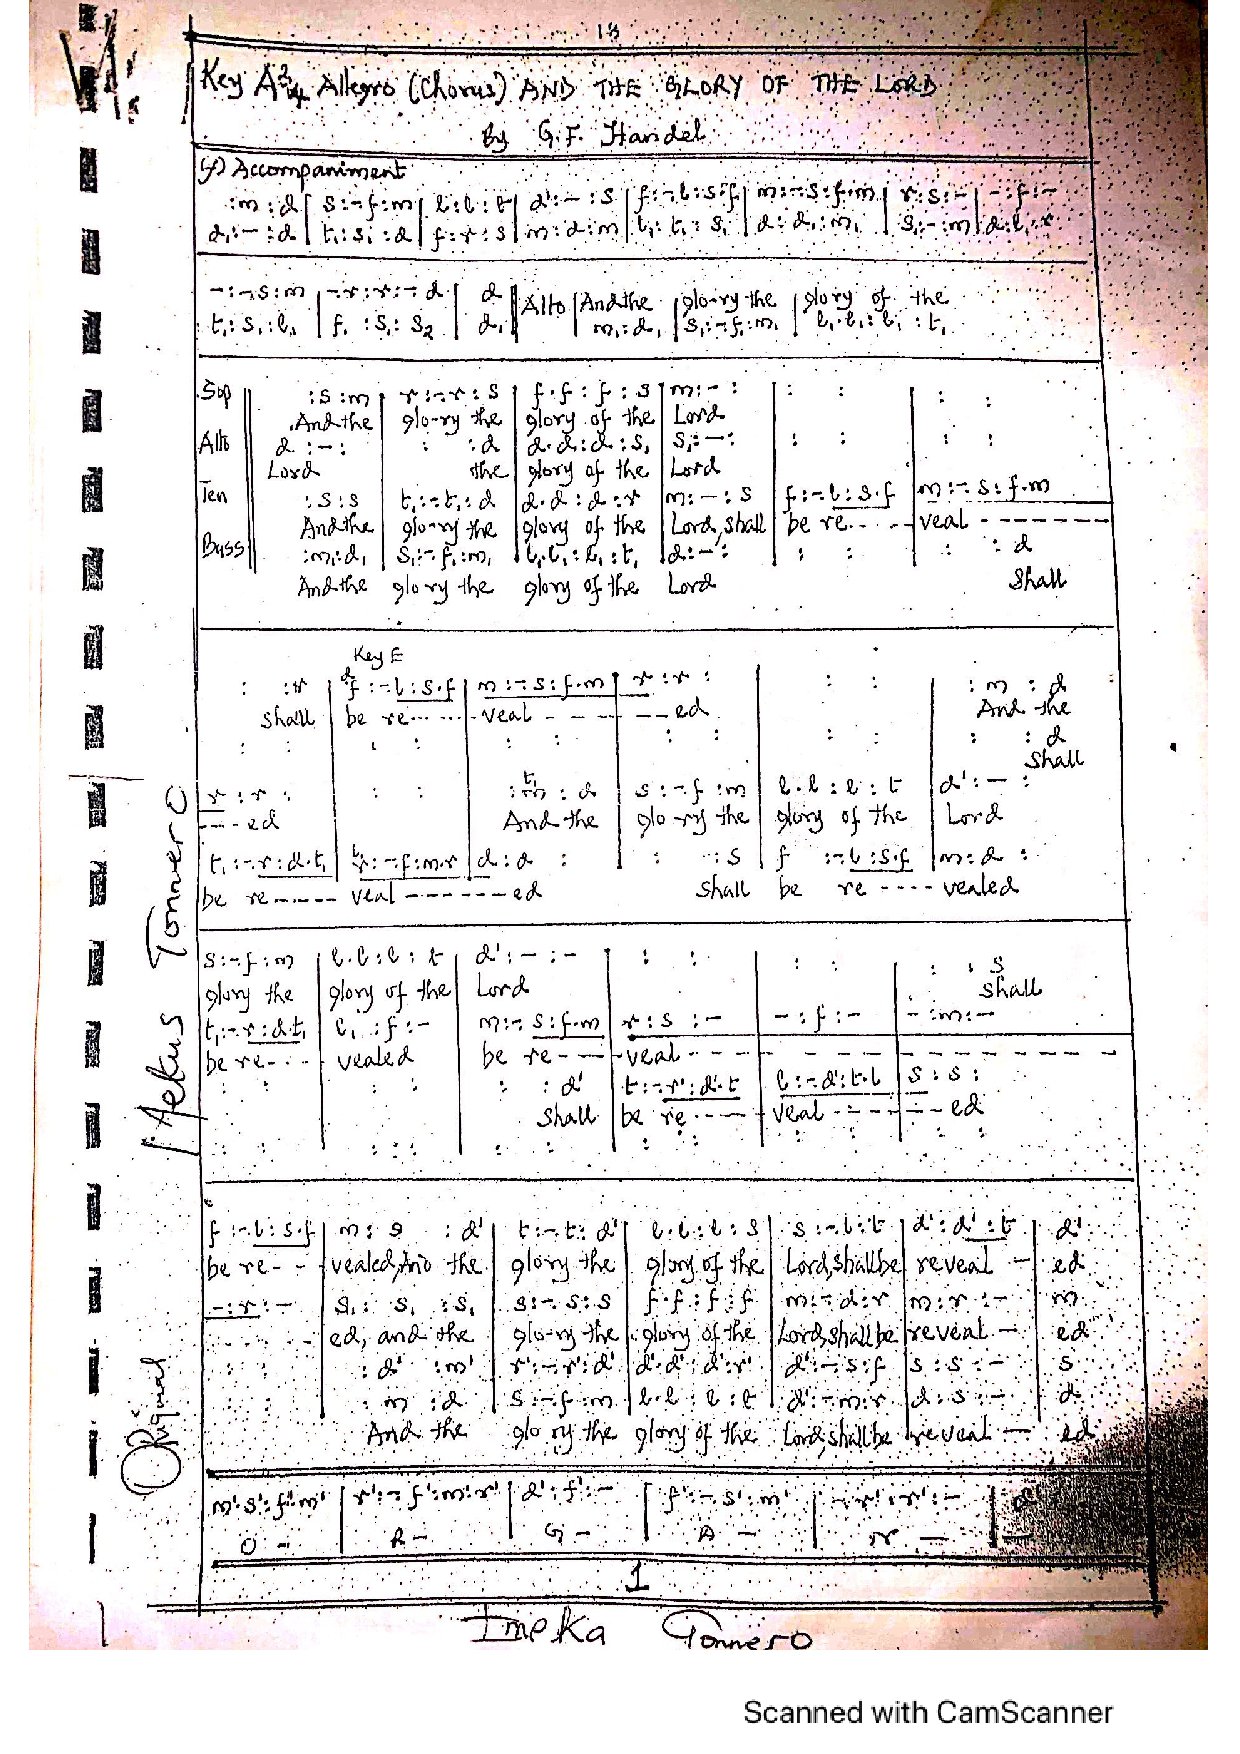 18
Key A 3/4 Allegro (Chorus) AND THE GLORY OF THE LORD
By G.F. Handel
(f) Accompaniment
:m :d | s :-.f :m | l :l :t | d' :- :s | f :-.l :s.f | m :-.s :f.m | r :s :- | - :f :-
d₁ :- :d | t₁ :s₁ :d | f :r :s | m :d :m | l₁ :t₁ :s₁ | d :d₁ :m₁ | s₁ :- :m | d :l₁ :r
- :-.s :m | -.r :r :-.d | d || Alto | And the | glo-ry the | glory of the
t₁ :s₁ :l₁ | f₁ :s₁ :s₂ | d₁ || m₁ :d₁ | s₁ :-.f₁ :m₁ | l₁.l₁ :l₁ :t₁
Sop || :s :m | r :-.r :s | f.f :f :s | m :- : | : : | : :
And the glo-ry the glory of the Lord
Alto d :- : | : :d | d.d :d :s₁ | s₁ :- : | : : | : :
Lord the glory of the Lord
Ten :s :s | t₁ :-.t₁ :d | d.d :d :r | m :- :s | f :-.l :s.f | m :-.s :f.m
And the glo-ry the glory of the Lord, shall be re---- veal --------
Bass || :m :d₁ | s₁ :-.f₁ :m₁ | l₁.l₁ :l₁ :t₁ | d :- : | : : | : :d
And the glo-ry the glory of the Lord Shall
Key E
: :r | d f :-.l :s.f | m :-.s :f.m | r :r : | : : | :m :d
shall be re------ veal ------- ---ed And the
: : | : : | : : | : : | : : | : :d
Shall
r :r : | : : | :t₁ m :d | s :-.f :m | l.l :l :t | d' :- :
----ed And the glo-ry the glory of the Lord
t₁ :-.r :d.t₁ | l₁ r :-.f :m.r | d :d : | : :s | f :-.l :s.f | m :d :
be re----- veal -------ed Shall be re ---- vealed
s :-.f :m | l.l :l :t | d' :- :- | : : | : : | : :s
glory the glory of the Lord Shall
t₁ :-.r :d.t₁ | l₁ :f :- | m :-.s :f.m | r :s :- | - :f :- | - :m :-
be re---- vealed be re--- veal -----------------
: : | : : | : :d' | t :-.r' :d'.t | l :-.d' :t.l | s :s :
Shall be re----- veal ------- --ed
: : | : : : | : : | : : | : : | : :
f :-.l :s.f | m :s :d' | t :-.t :d' | l.l :l :s | s :-.l :t | d' :d' :t | d'
be re--- vealed, And the glory the glory of the Lord, shall be reveal - ed
- :r :- | s₁ :s₁ :s₁ | s :-.s :s | f.f :f :f | m :-.d :r | m :r :- | m
------ ed, and the glo-ry the glory of the Lord, shall be reveal - ed
: : | :d' :m' | r' :-.r' :d' | d'.d' :d' :r' | d' :-.s :f | s :s :- | s
: : | :m :d | s :-.f :m | l.l :l :t | d' :-.m :r | d :s :- | d
And the glo ry the glory of the Lord, shall be reveal - ed
m' s' :f'.m' | r' :-.f' :m'.r' | d' :f' :- | f' :-.s' :m' | -.r' :r' :- | d'
O - R - G - A - N -
1
Imeka Tonnero
Aekus Tonnero
Original
Scanned with CamScanner